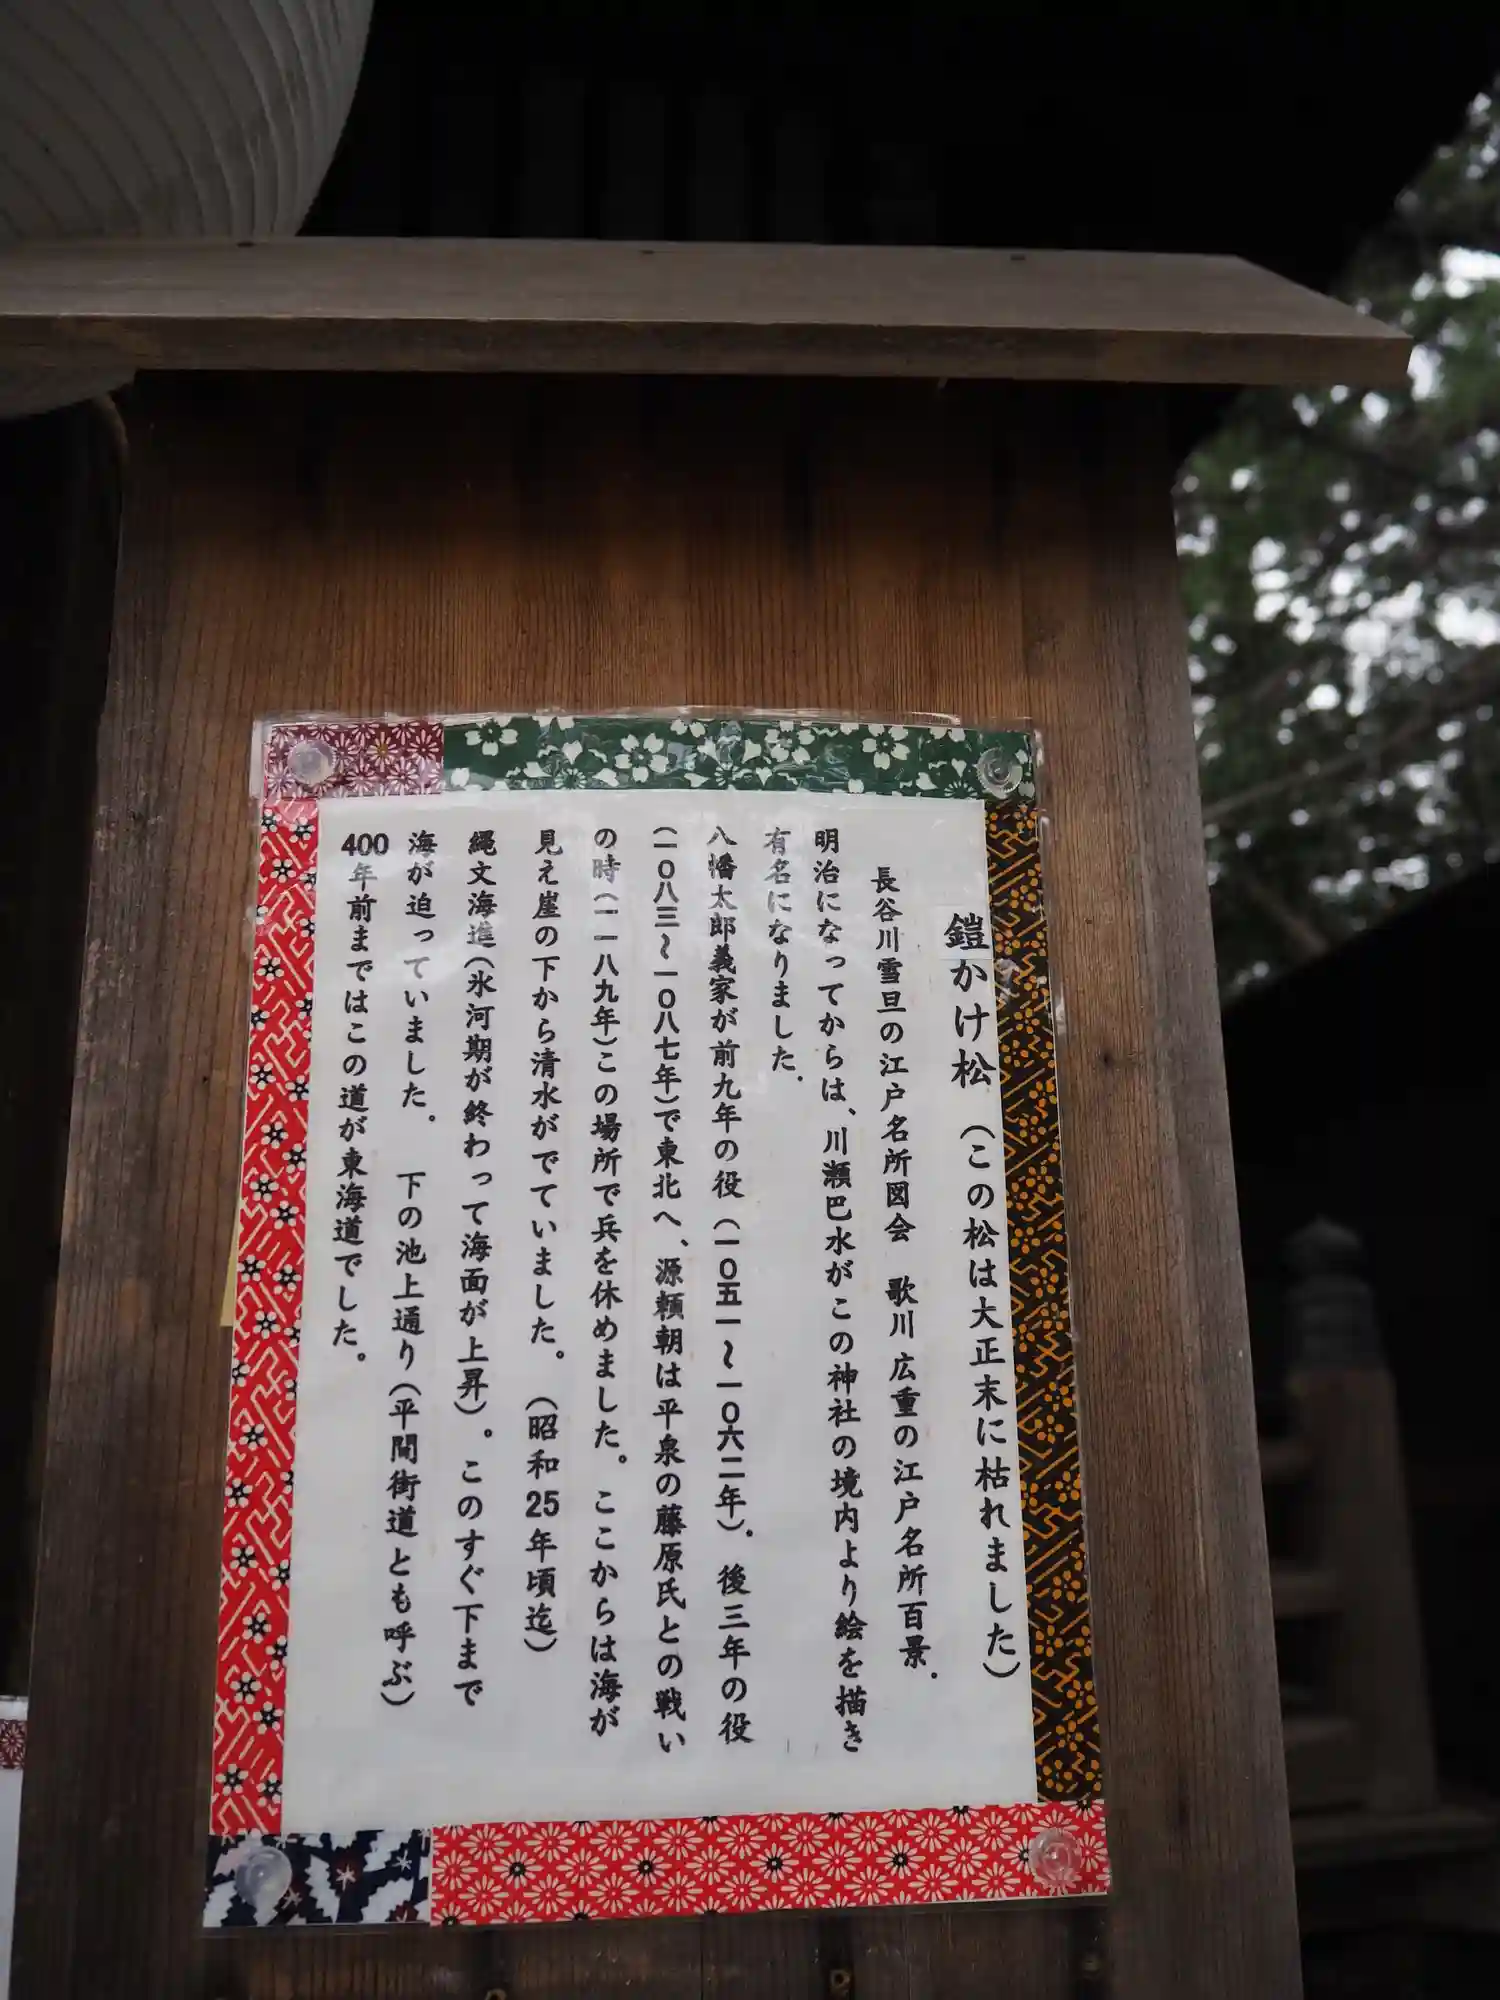 鎧かけ松 (この松は大正末に枯れました)
長谷川雪旦の江戸名所図会 歌川広重の江戸名所百景.
明治になってからは、川瀬巴水がこの神社の境内より絵を描き
有名になりました.
八幡太郎義家が前九年の役(一〇五一~一〇六二年). 後三年の役
(一〇八三~一〇八七年)で東北へ、源頼朝は平泉の藤原氏との戦い
の時(一一八九年)この場所で兵を休めました。ここからは海が
見え崖の下から清水がでていました。(昭和25年頃迄)
縄文海進(氷河期が終わって海面が上昇)。このすぐ下まで
海が迫っていました。 下の池上通り(平間街道とも呼ぶ)
400年前まではこの道が東海道でした。